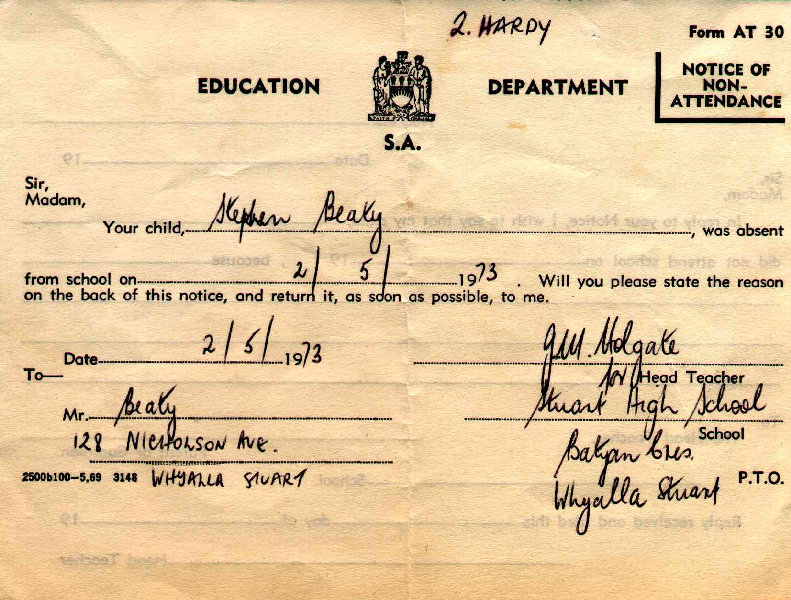 2. HARDY
Form AT 30
EDUCATION DEPARTMENT
NOTICE OF
NON-
ATTENDANCE
S.A.
Sir,
Madam,
Your child, Stephen Beaty, was absent
from school on 2/5/1973. Will you please state the reason
on the back of this notice, and return it, as soon as possible, to me.
Date 2/5/1973
G.M. Holgate
To—
for Head Teacher
Mr. Beaty
Stuart High School
School
128 NICHOLSON AVE.
Cres.
P.T.O.
2500b100—5,69 3148 WHYALLA STUART
Whyalla Stuart